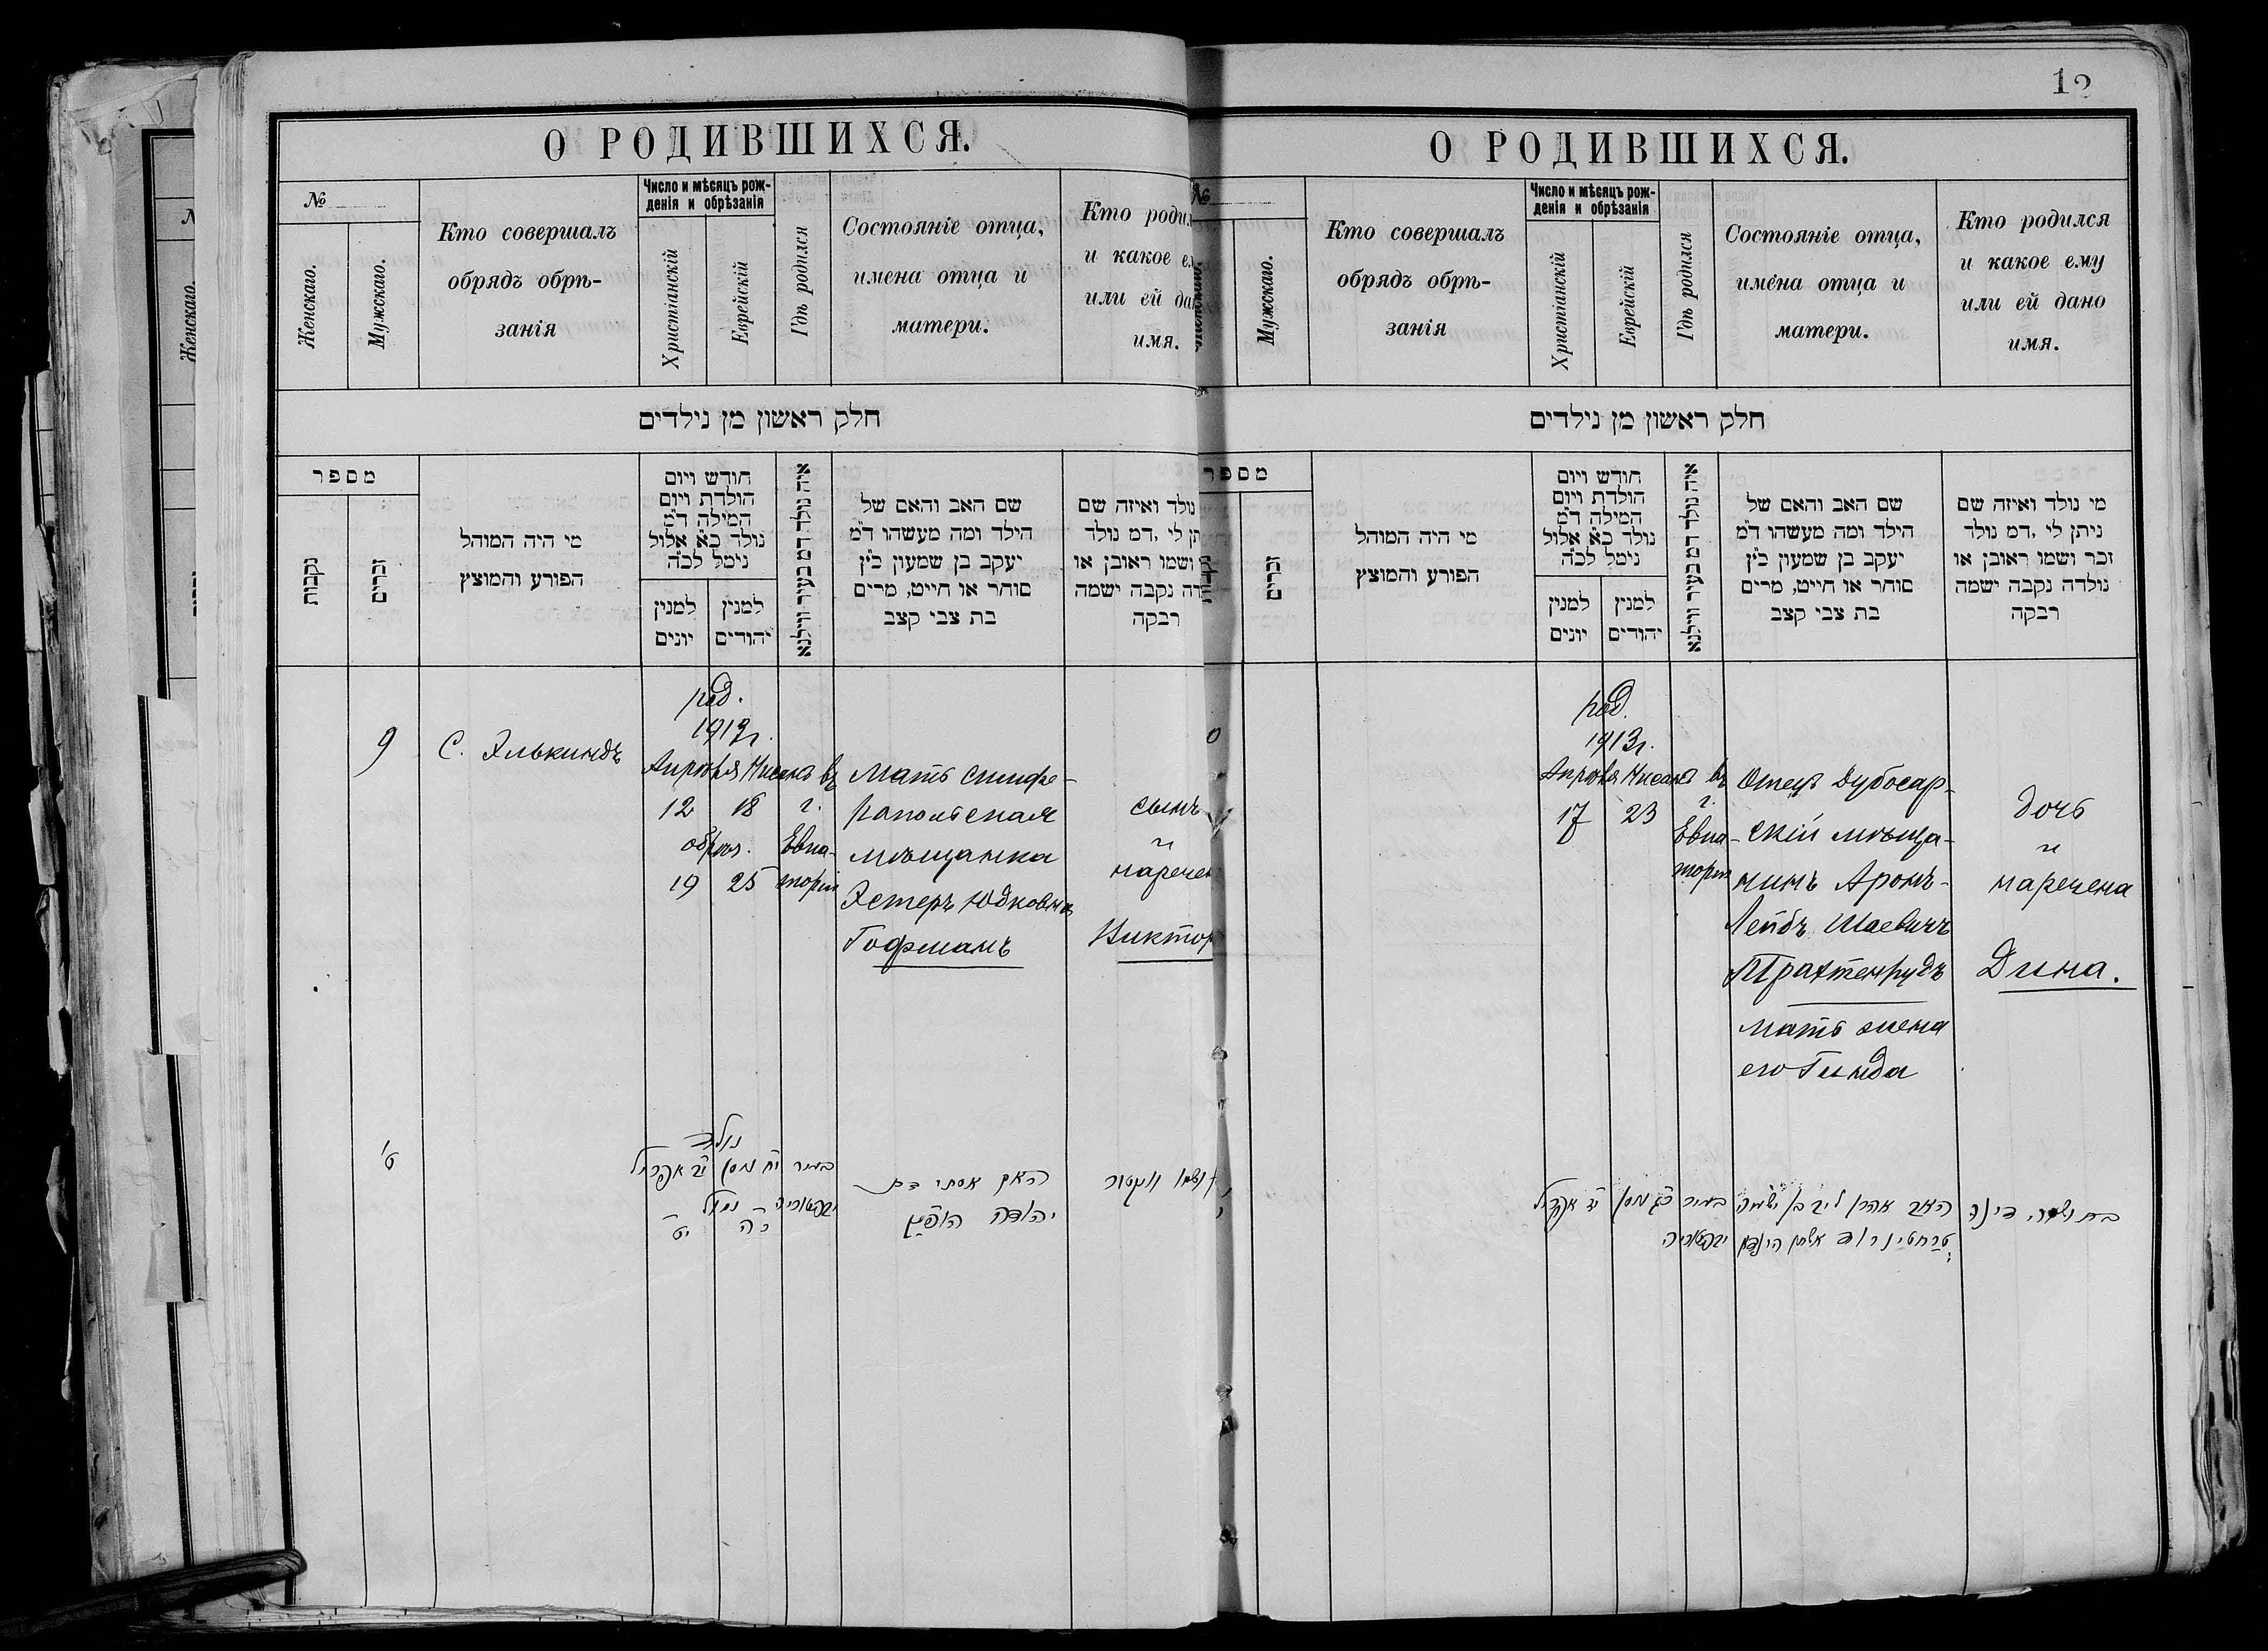 О РОДИВШИХСЯ.
№
Женскаго.
Мужскаго.
Кто совершалъ
обрядъ обрѣ-
занія
Число и мѣсяцъ рож-
денія и обрѣзанія
Христіанскій
Еврейскій
Гдѣ родился
Состояніе отца,
имена отца и
матери.
Кто родил
и какое е
или ей да
имя.
חלק ראשון מן נילדים
מספר
נקבות
זכרים
מי היה המוהל
הפורע והמוצץ
חודש ויום
הולדת ויום
המילה ד״מ
נולד כ״א אלול
נימל לכ״ה
למנין
יונים
למנין
יהודים
איה נולד דמ בעיר ווילנא
שם האב והאם של
הילד ומה מעשהו ד״מ
יעקב בן שמעון כ״ץ
סוחר או חייט, מרים
בת צבי קצב
נולד ואיזה שם
תן לי ,דמ נולד
ושמו ראובן או
דה נקבה ישמה
רבקה
9
С. Элькиндъ
род.
1913г.
Апрѣля Нисана въ
12 18 г.
обрѣз. Евпа-
19 25 торіи
Мать Симфе-
ропольская
мѣщанка
Эстеръ Юдковна
Гофманъ
сынъ
и
наречен
Виктор
ט׳
נולד
י״ב אפריל
י״ח ניסן
בעיר
נימול
י״ט
כ״ה
האם אסתר בת
יהודה
ושמו וויקטור
12
О РОДИВШИХСЯ.
№
Мужскаго.
Кто совершалъ
обрядъ обрѣ-
занія
Число и мѣсяцъ рож-
денія и обрѣзанія
Христіанскій
Еврейскій
Гдѣ родился
Состояніе отца,
имена отца и
матери.
Кто родился
и какое ему
или ей дано
имя.
חלק ראשון מן נילדים
מספר
זכרים
מי היה המוהל
הפורע והמוצץ
חודש ויום
הולדת ויום
המילה ד״מ
נולד כ״א אלול
נימל לכ״ה
למנין
יונים
למנין
יהודים
איה נולד דמ בעיר ווילנא
שם האב והאם של
הילד ומה מעשהו ד״מ
יעקב בן שמעון כ״ץ
סוחר או חייט, מרים
בת צבי קצב
מי נולד ואיזה שם
ניתן לי ,דמ נולד
זכר ושמו ראובן או
נולדה נקבה ישמה
רבקה
род.
1913г.
Апрѣля Нисана въ
17 23 г.
Евпа-
торіи
Отецъ Дубосар-
скій мѣща-
нинъ Аронъ-
Лейбъ Шаевичъ
Трахтенрудъ
Мать жена
его Гинда
дочь
и
наречена
Дина.
אפריל
כ״ג ניסן
בעיר
האב אהרן ליב בן ישעיה
טרחטינרוד אשתו הינדא
בת ושמה דינה